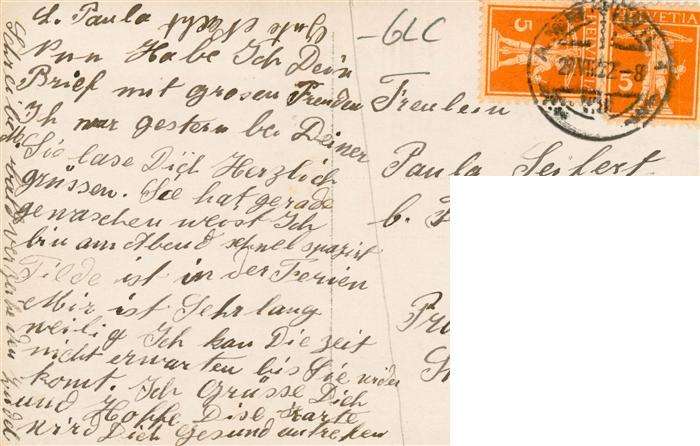 L. Paula
Nun Habe Ich Dein
Brief mit grosen Freuden
Ich war gestern bei Deiner
Sie lase Dich Herzlich
grüssen. Sie hat gerade
gewaschen weist Ich
bin am Abend schnel spaziert
Tilde ist in der Ferien
Mir ist Sehr lang
weilig Ich kan Die zeit
nicht erwarten bis Sie wider
komt. Ich Grüsse Dich
und Hoffe Dise karte
wird Dich gesund antreffen
Schreibe bald wider
-6LC
Freulein
Paula Seifert
b.
5
HELVETIA
5
22-8